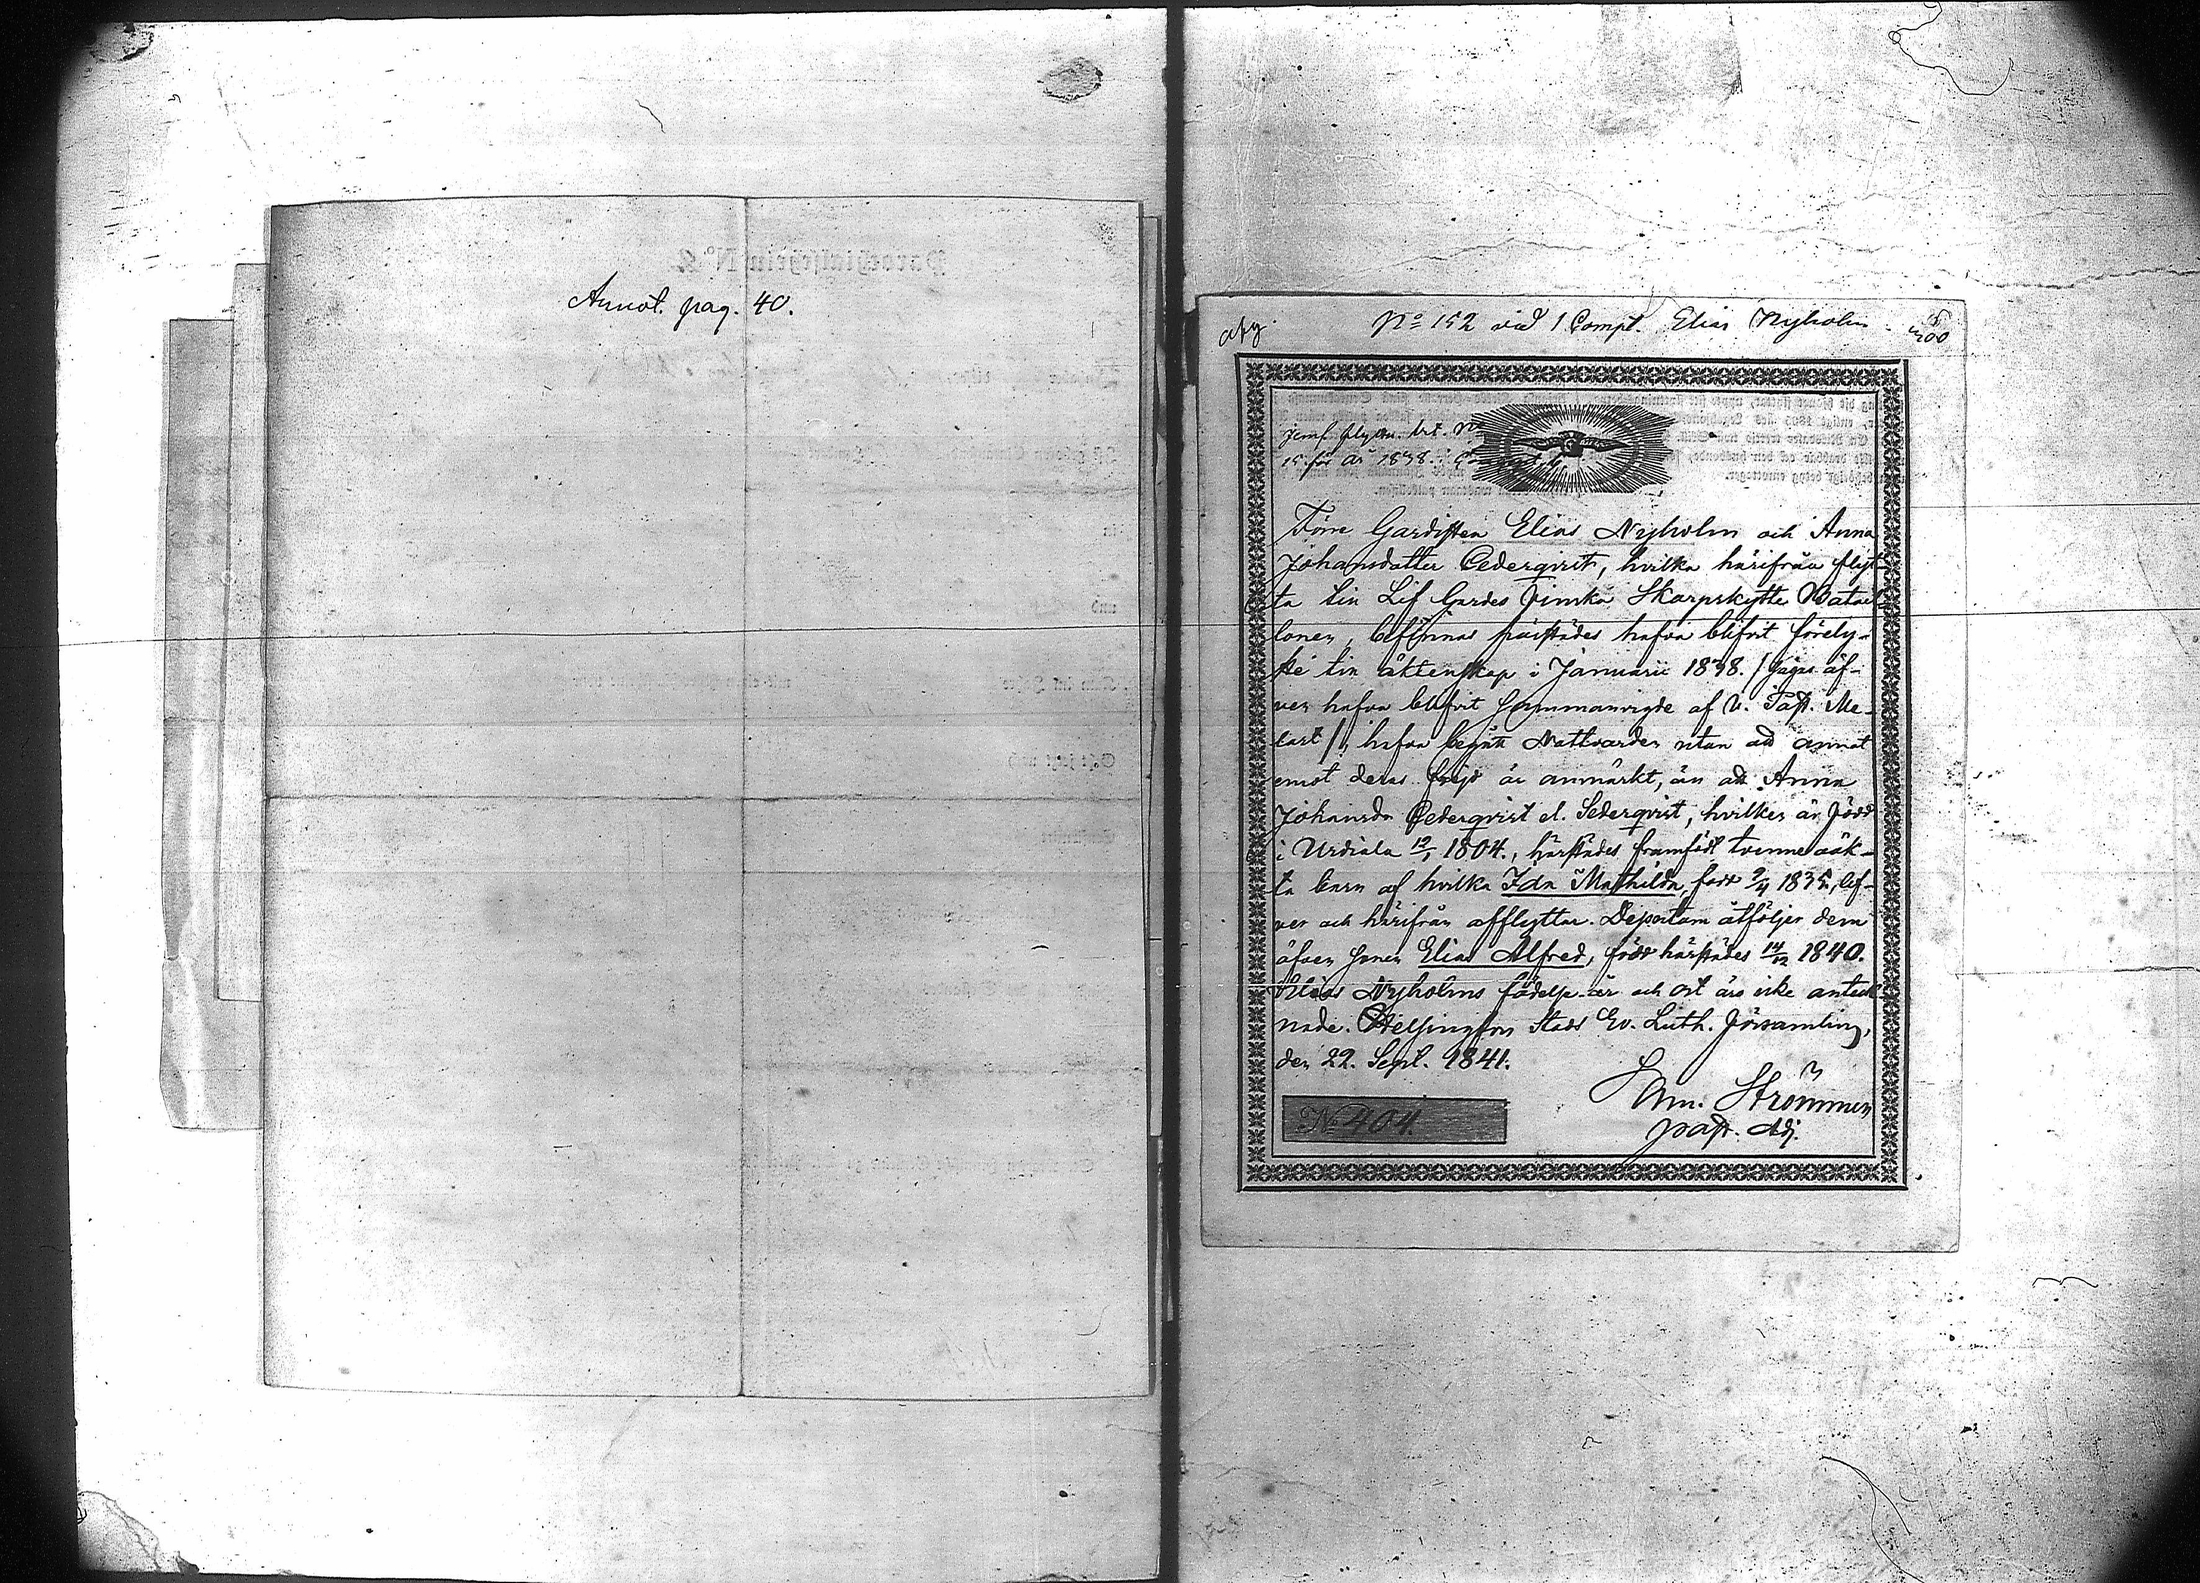 Annot. pag. 40.
afg. No 152 vid 1 Comp. Elias Nyholm
Jemf. flyttn. bet. No
15 för år 1838.
Förre Gardisten Elias Nyholm och Anna
Johansdotter Cederqvist, hvilka härifrån flyt-
ta till Lif Gardes Finska Skarpskytte Batail-
lonen, befinnas härstädes hafva blifvit förely-
ste till äktenskap i Januarii 1838. / sägas äf-
ven hafva blifvit sammanvigde af V. Past. Me-
lart /, hafva begått Nattvarden utan att annat
emot deras frejd är anmärkt, än att Anna
Johansdr Cederqvist el. Sederqvist, hvilken är född
i Urdiala 12/1 1804., härstädes framfödt tvenne oäk-
ta barn af hvilka Ida Mathilda, född 9/4 1835, lef-
ver och härifrån afflyttar. Dessutom åtföljer dem
äfven sonen Elias Alfred, född härstädes 14/12 1840.
Elias Nyholms födelse-år och ort äro icke anteck-
nade. Helsingfors Stads Ev. Luth. Församling,
den 22. Sept. 1841.
Strömmer
past. Adj.
No 404.